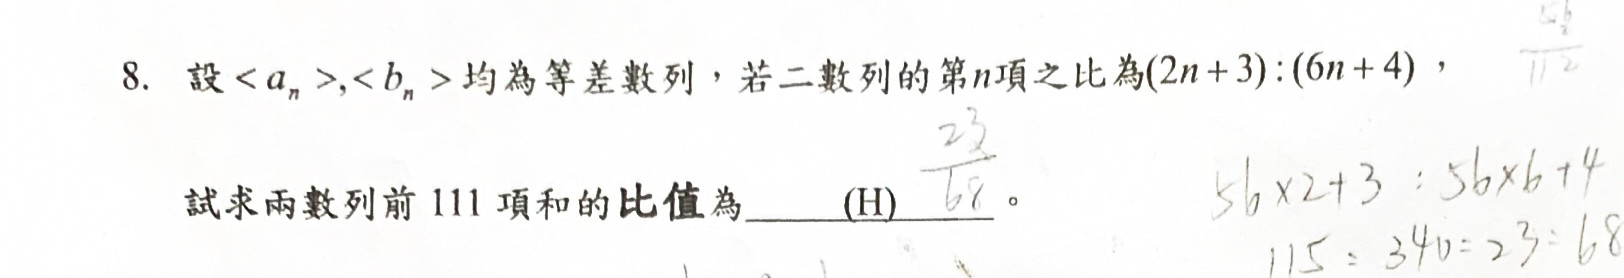 8. 設<aₙ>,<bₙ>均為等差數列，若二數列的第n項之比為(2n+3):(6n+4)，
試求兩數列前 111 項和的比值為 (H) 。
23/68
56×2+3 : 56×6+4
115 : 340 = 23 : 68